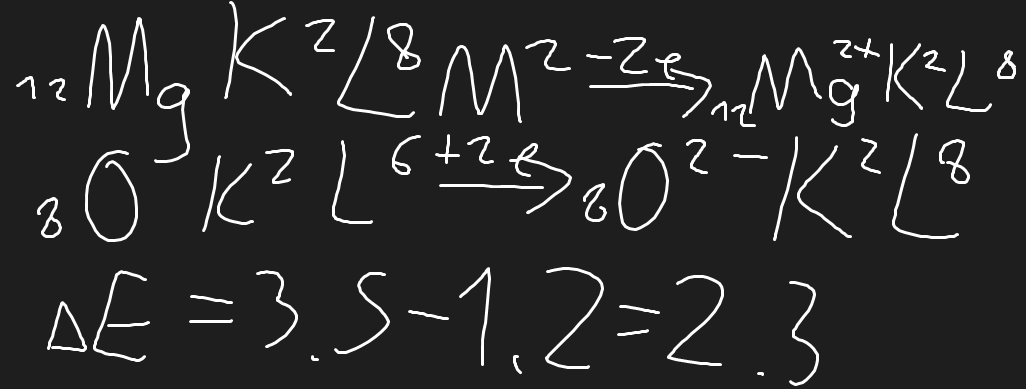 ₁₂Mg K²L⁸M² −2e→ ₁₂Mg²⁺K²L⁸
₈O K²L⁶ +2e→ ₈O²⁻K²L⁸
ΔE = 3.5−1,2=2.3